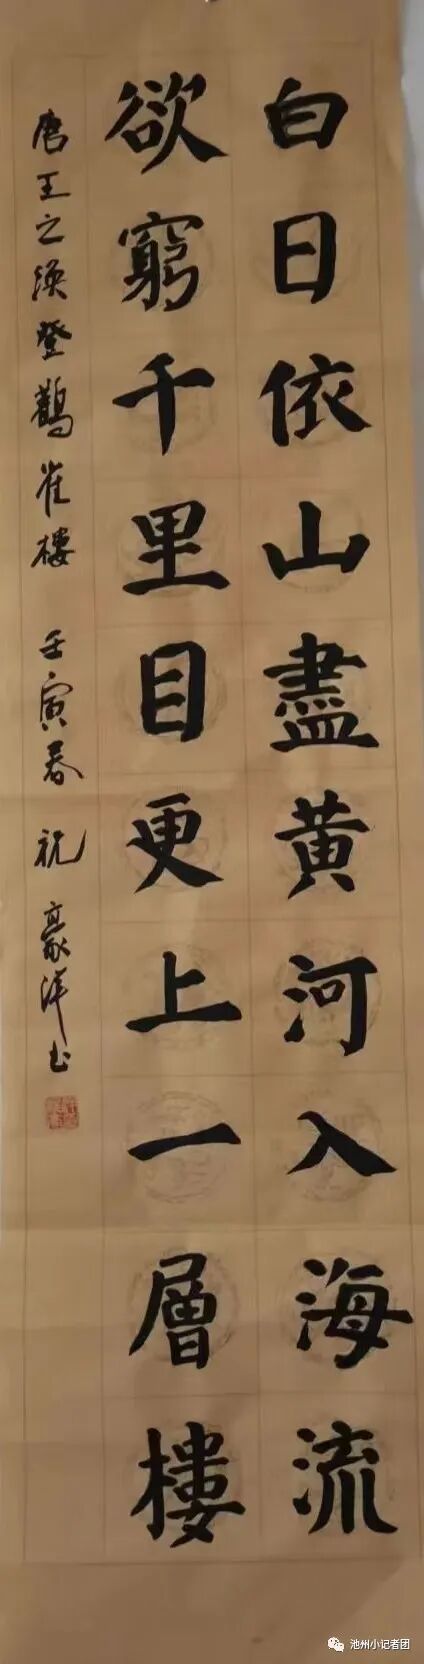 白日依山盡黄河入海流
欲窮千里目更上一層樓
唐王之渙登鸛雀樓 壬寅春 祝豪洋书
池州小记者团